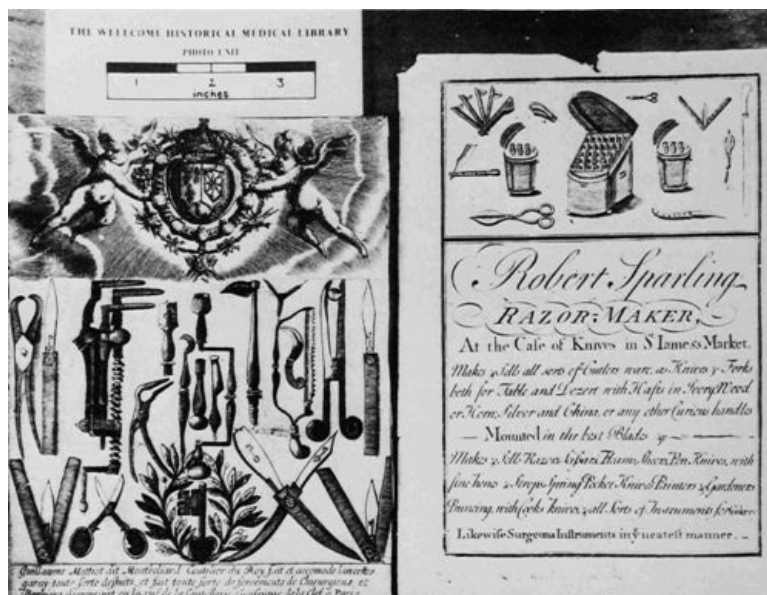 THE WELLCOME HISTORICAL MEDICAL LIBRARY
PHOTO UNIT
1 2 3
inches
dit Montbeliard Coutelier du Roy fait et accomode lancettes
garny toute sorte et fait toute sorte de de Chirurgiens, et
Robert Sparling
RAZOR-MAKER,
At the Case of Knives in St Iames's Market.
Makes & Sells all sorts of Cutlers ware, as Knives & Forks
both for Table and Dezert with Hafts in Ivory Wood
or Horn, Silver and China, or any other Curious handles
Mounted in the best Blades &c
Makes & Sells Razors, Pen Knives, with
fine hones & Strops Spring Pocket Knives &Gardeners
Pruning, with Cooks knives, & all Sorts of Instruments for
Likewise Surgeons Instruments in ye neatest manner.